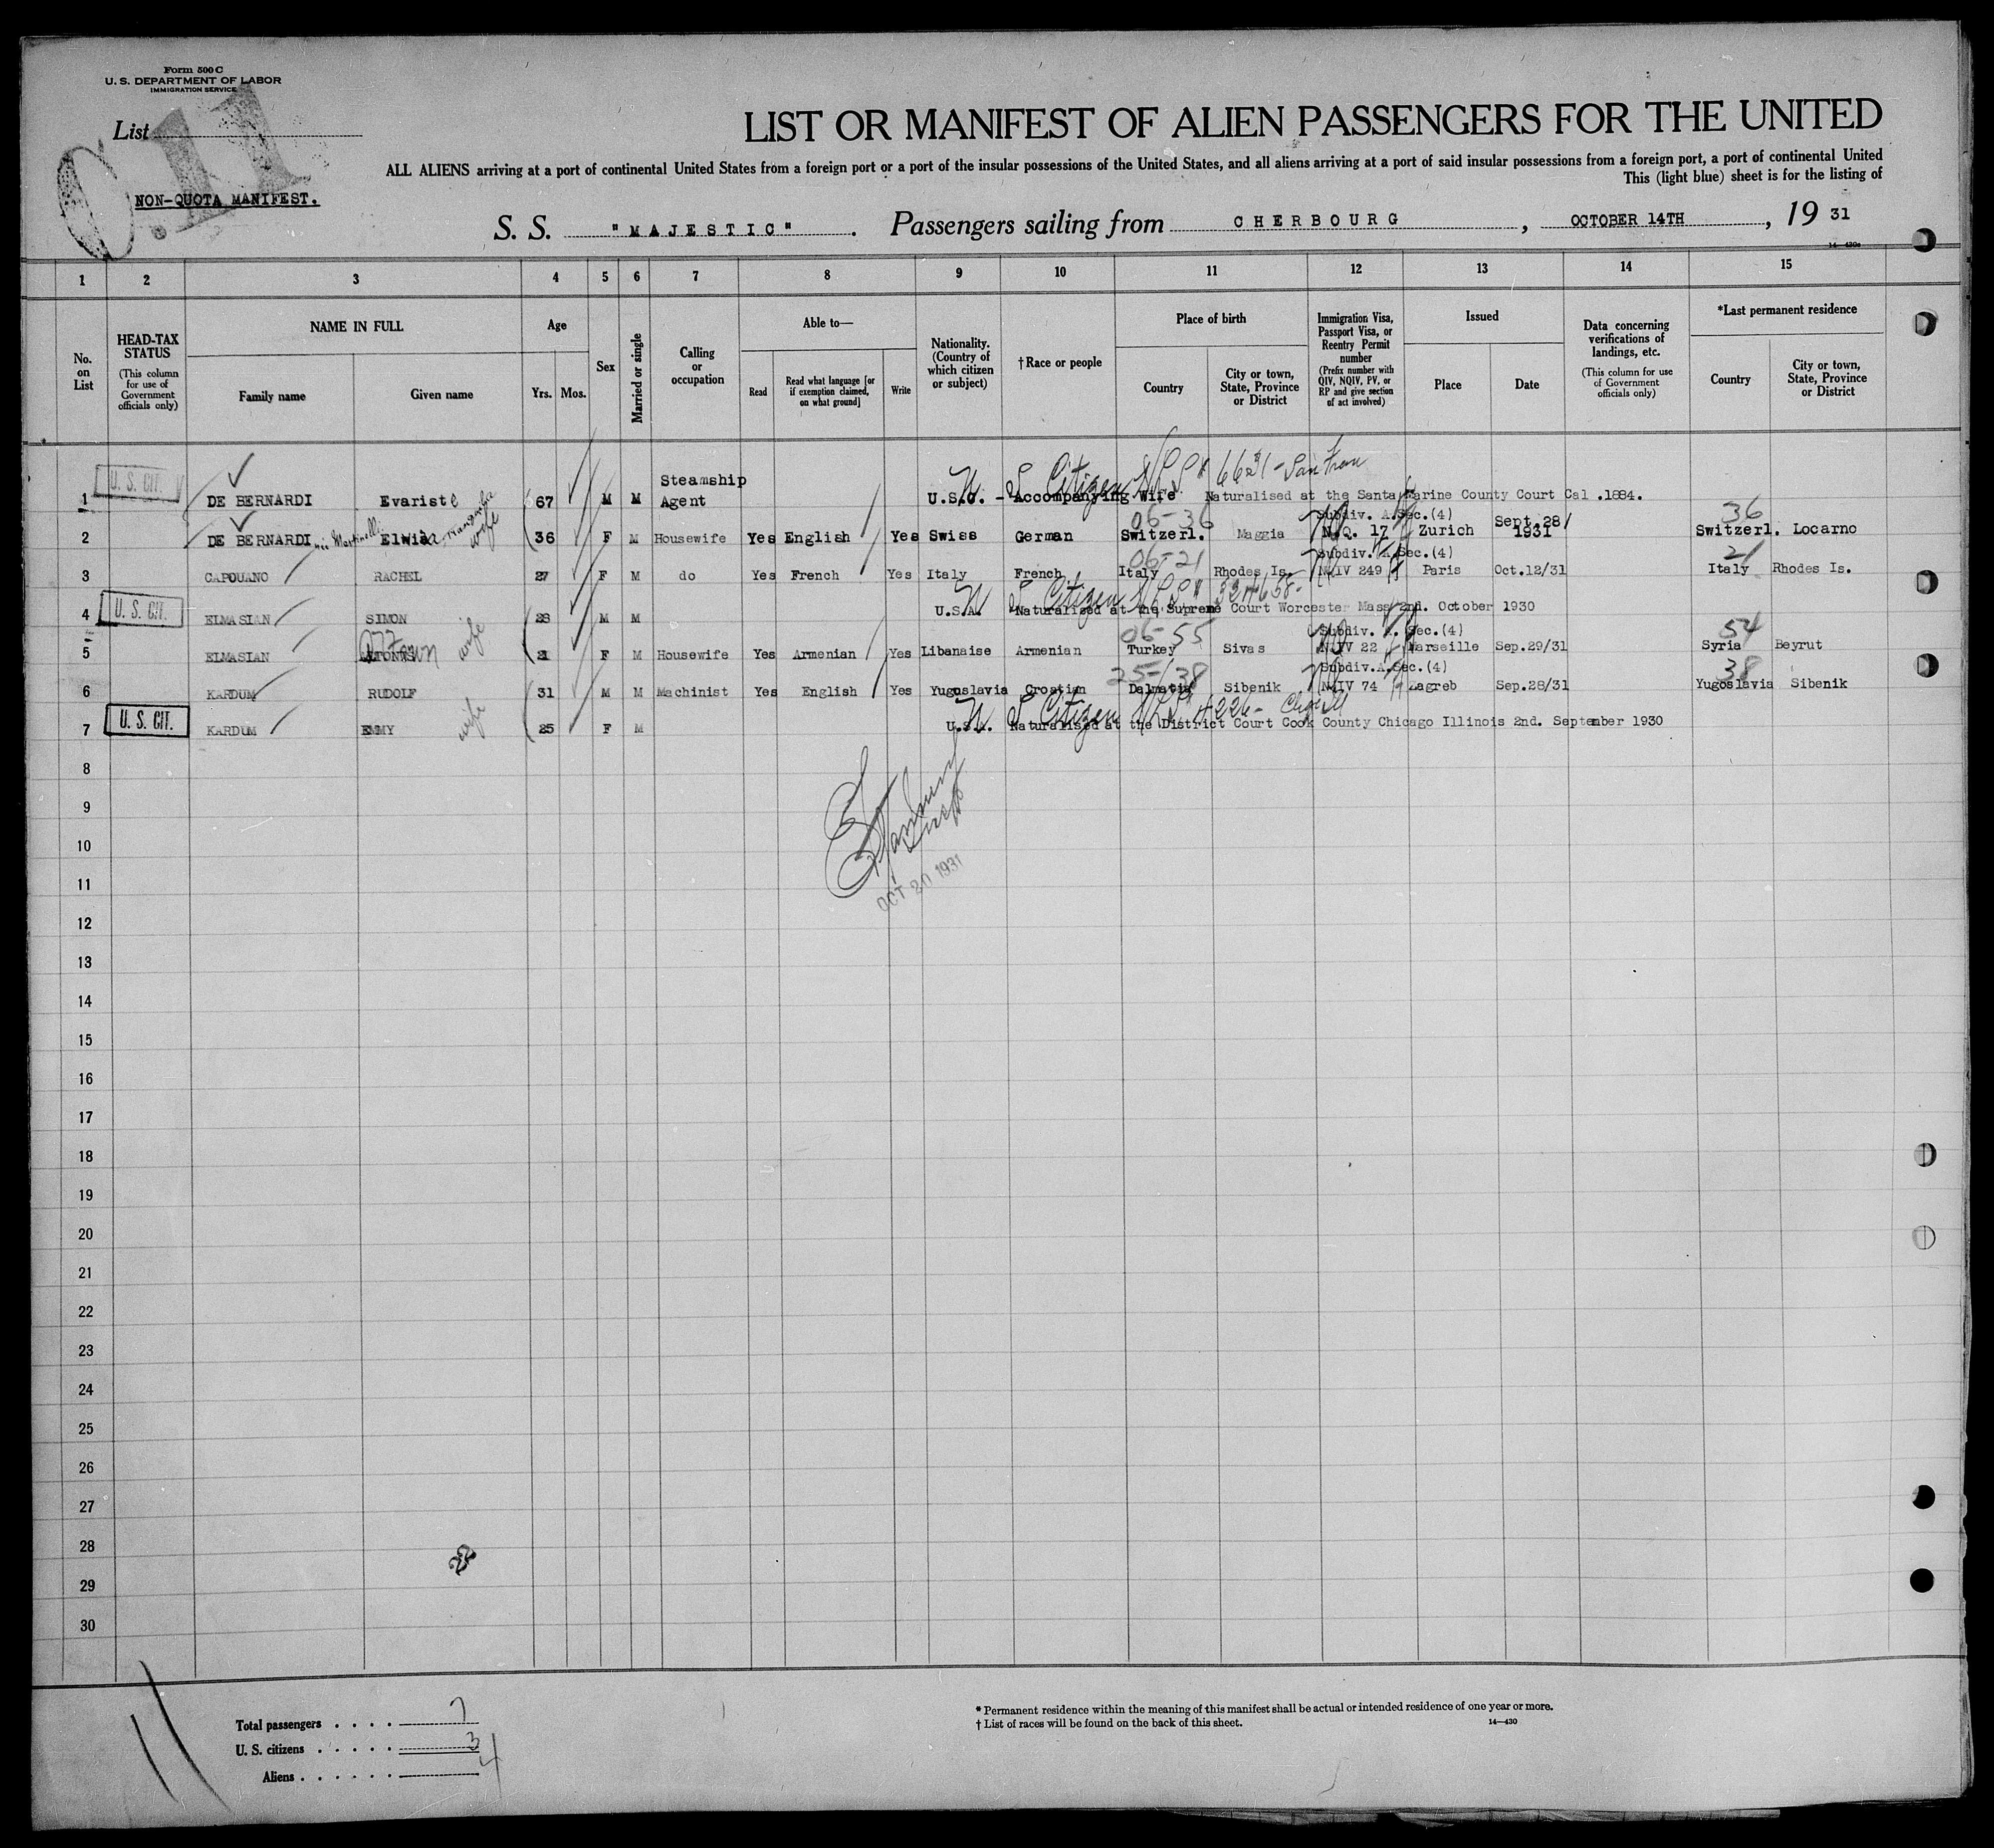 Form 500 C
U. S. DEPARTMENT OF LABOR
IMMIGRATION SERVICE
List
C.11
NON-QUOTA MANIFEST.
LIST OR MANIFEST OF ALIEN PASSENGERS FOR THE UNITED
ALL ALIENS arriving at a port of continental United States from a foreign port or a port of the insular possessions of the United States, and all aliens arriving at a port of said insular possessions from a foreign port, a port of continental United
This (light blue) sheet is for the listing of
S. S. "MAJESTIC". Passengers sailing from CHERBOURG, OCTOBER 14TH, 19 31
1 2 3 4 5 6 7 8 9 10 11 12 13 14 15
No. on List
HEAD-TAX STATUS
(This column for use of Government officials only)
NAME IN FULL
Family name
Given name
Age
Yrs. Mos.
Sex
Married or single
Calling or occupation
Able to—
Read
Read what language [or if exemption claimed, on what ground]
Write
Nationality. (Country of which citizen or subject)
† Race or people
Place of birth
Country
City or town, State, Province or District
Immigration Visa, Passport Visa, or Reentry Permit number
(Prefix number with QIV, NQIV, PV, or RP and give section of act involved)
Issued
Place
Date
Data concerning verifications of landings, etc.
(This column for use of Government officials only)
*Last permanent residence
Country
City or town, State, Province or District
U S Citizen 6621 - San Fran
1 U. S. CIT. DE BERNARDI Evariste 67 M M Steamship Agent U.S.C. - Accompanying wife Naturalised at the Santa Marine County Court Cal .1884.
06-36 Subdiv. A.Sec.(4) 36
2 DE BERNARDI Elwia wife 36 F M Housewife Yes English Yes Swiss German Switzerl. Maggia N.Q. 17 Zurich Sept.28/1931 Switzerl. Locarno
06-21 Subdiv. A.Sec.(4) 21
3 CAPOUANO RACHEL 27 F M do Yes French Yes Italy French Italy Rhodes Is. NQIV 249 Paris Oct.12/31 Italy Rhodes Is.
U S Citizen
4 U. S. CIT. ELMASIAN SIMON 28 M M U.S.A. Naturalised at the Supreme Court Worcester Mass 2nd. October 1930
06-55 Subdiv. A. Sec.(4) 54
5 ELMASIAN wife 21 F M Housewife Yes Armenian Yes Libanaise Armenian Turkey Sivas NQIV 22 Marseille Sep.29/31 Syria Beyrut
25-38 Subdiv.A.Sec.(4) 38
6 KARDUM RUDOLF 31 M M Machinist Yes English Yes Yugoslavia Croatian Dalmatia Sibenik NQIV 74 Zagreb Sep.28/31 Yugoslavia Sibenik
U S Citizen
7 U. S. CIT. KARDUM EMMY wife 25 F M U.S.A. Naturalised at the District Court Cook County Chicago Illinois 2nd. September 1930
8
9
10
11
OCT 20 1931
12
13
14
15
16
17
18
19
20
21
22
23
24
25
26
27
28
29
30
11
Total passengers 7
U. S. citizens 3
Aliens 4
* Permanent residence within the meaning of this manifest shall be actual or intended residence of one year or more.
† List of races will be found on the back of this sheet.
14—430